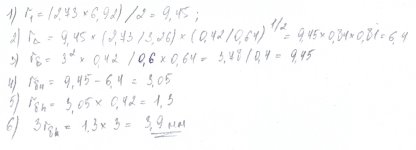 1) r₁ = (2,73 × 6,92) / 2 = 9,45 ;
2) r₂ = 9,45 × (2,73 / 3,26) × (0,42 / 0,64)^1/2 = 9,45 × 0,84 × 0,81 = 6,4
3) = 3² × 0,42 / 0,6 × 0,64 = 3,78 / 0,4 = 9,45
4) = 9,45 - 6,4 = 3,05
5) = 3,05 × 0,42 = 1,3
6) = 1,3 × 3 = 3,9 мм